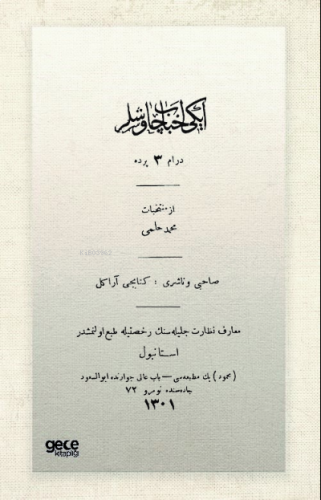 ایكی احباب چاوشلر
درام ۳ پرده
از منتخبات
محمد حلمی
صاحبی و ناشری : كتابجی آراكل
معارف نظارت جلیله‌سنك رخصتیله طبع اولنمشدر
استانبول
(محمود) بك مطبعه‌سی — باب عالی جوارنده ابوالسعود
جاده‌سنده نومرو ۷۲
۱۳۰۱
gece
kitaplığı